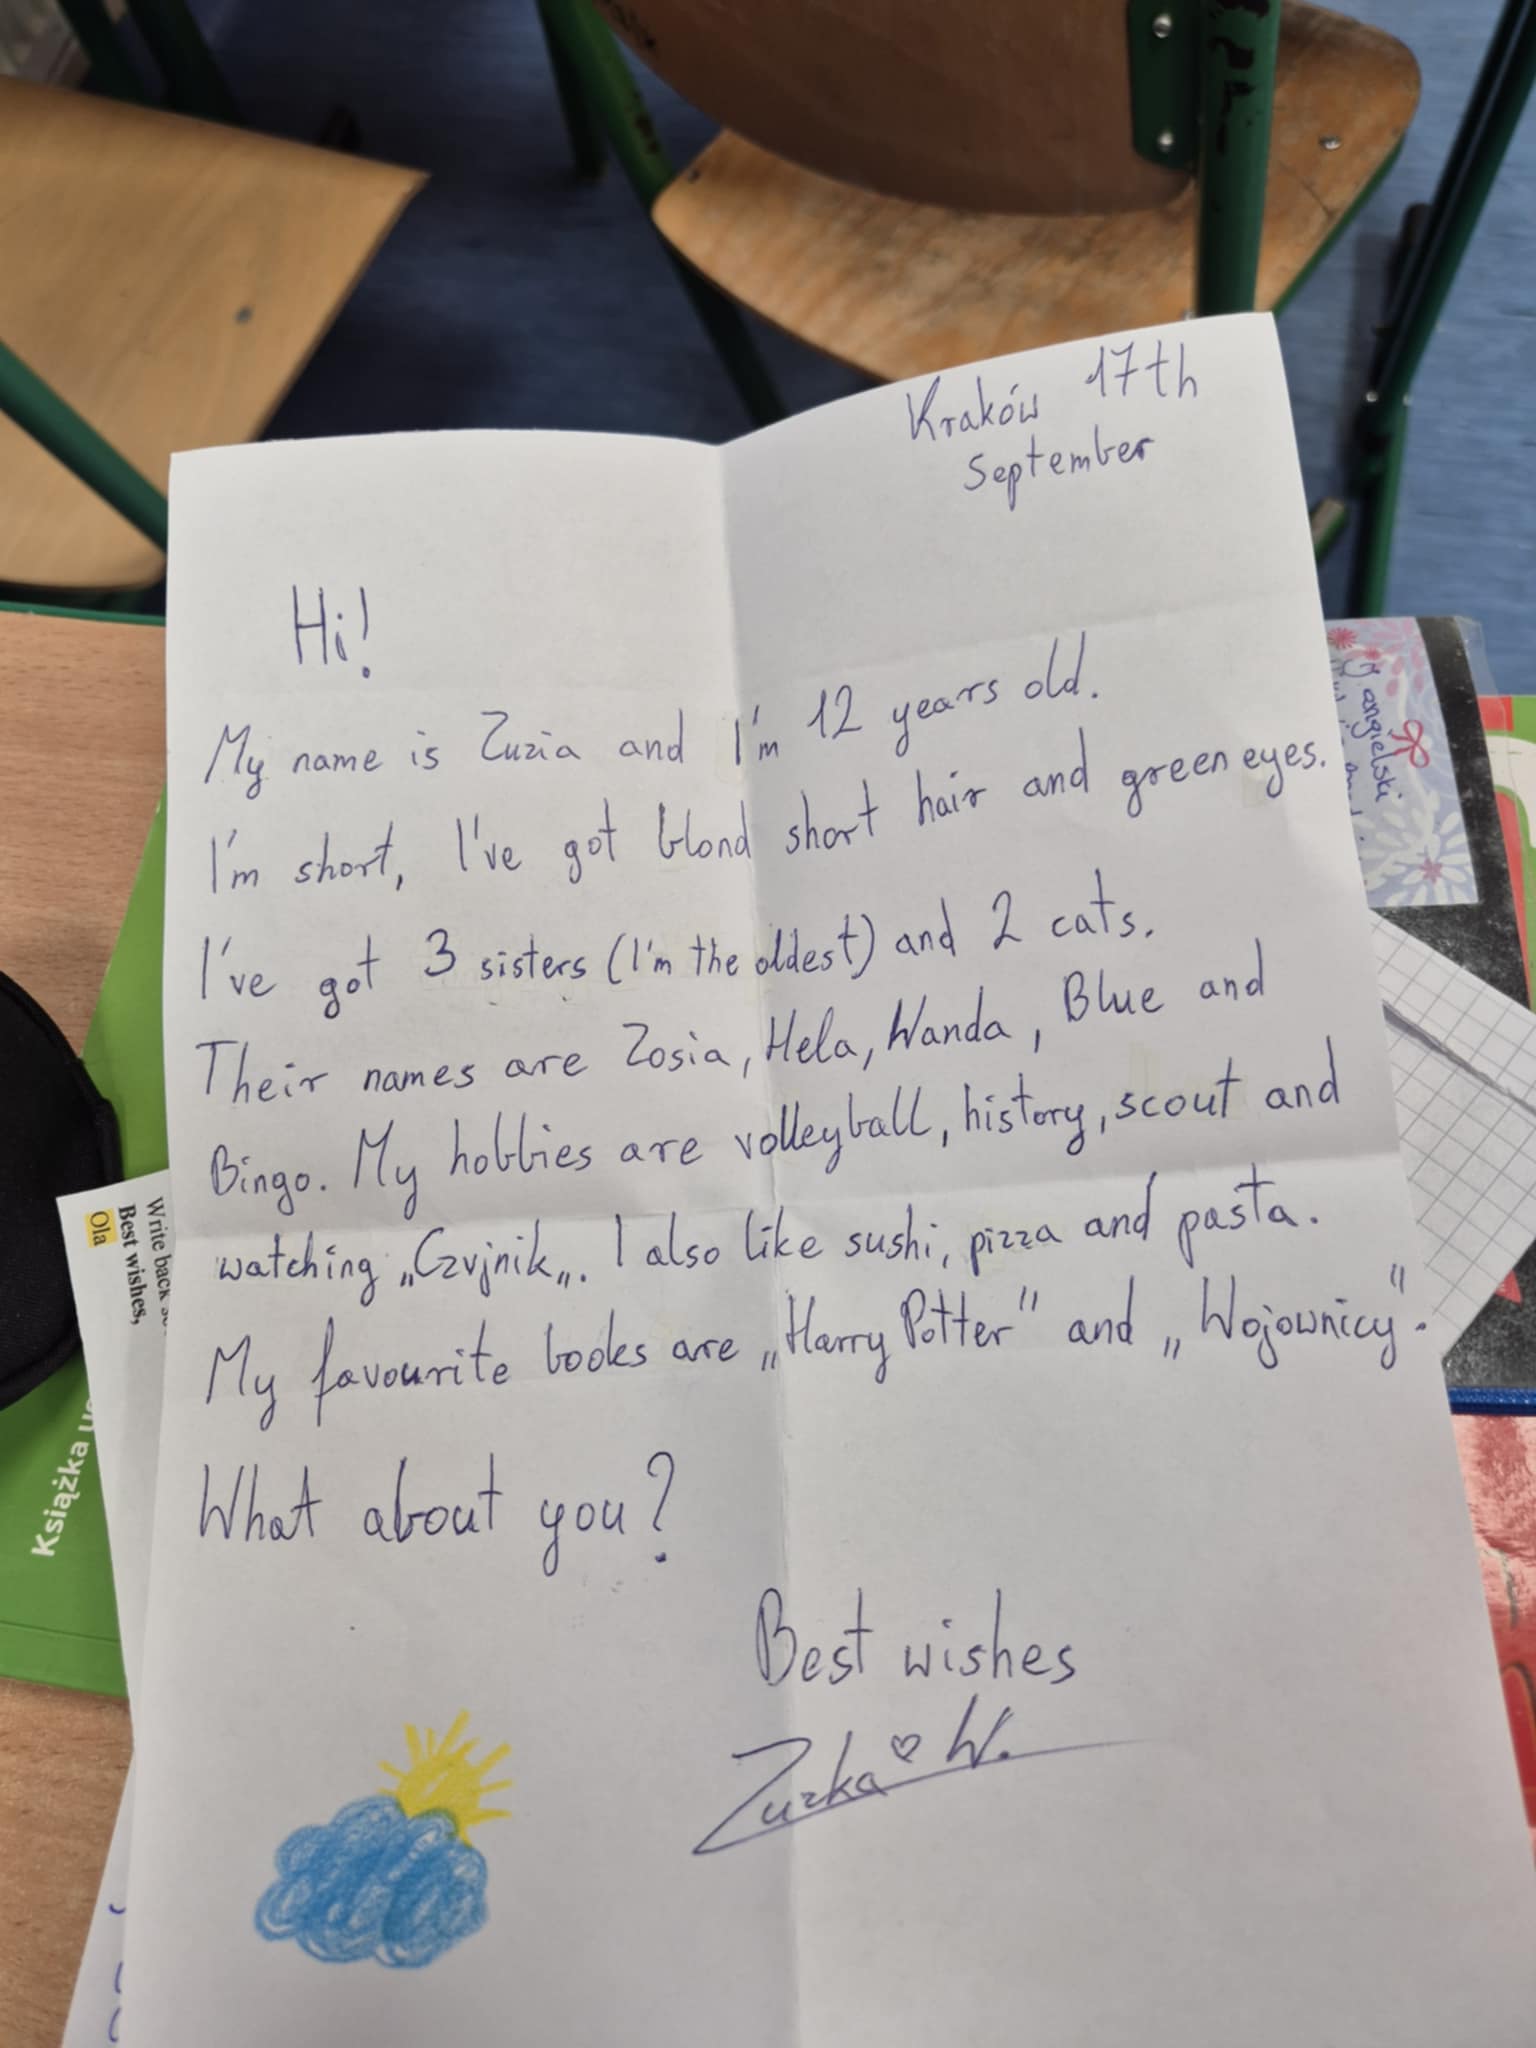 Kraków 17th
September
Hi!
My name is Zuzia and I'm 12 years old.
I'm short, I've got blond short hair and green eyes.
I've got 3 sisters (I'm the oldest) and 2 cats.
Their names are Zosia, Hela, Wanda, Blue and
Bingo. My hobbies are volleyball, history, scout and
watching „Czvjnik„. I also like sushi, pizza and pasta.
My favourite books are „Harry Potter" and „Wojownicy".
What about you?
Best wishes
Zuzka ♡ W.
Write back
Best wishes,
Ola
Książka
angielski